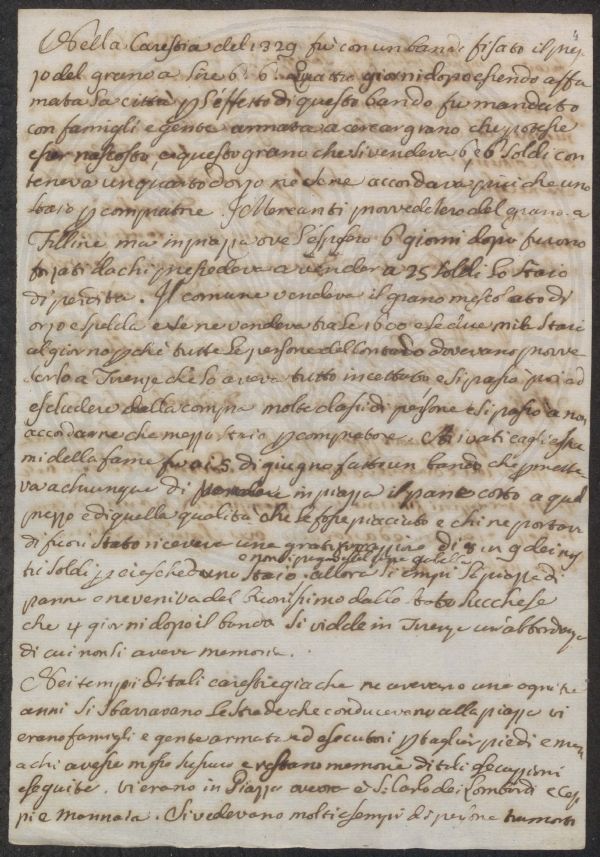 4
Nella Carestia del 1329 fù con un bando fissato il prez
zo del grano a lire 6. 6. Quattro giorni dopo essendo affa
mata la città p l'effetto di questo bando fu mandato
con famigli e gente armata a cercar grano che potesse
esser nascosto, e questo grano che si vendeva 6, e 6 soldi con
teneva un quarto d'orzo nè se ne accordava più che uno
staio p compratore. I Mercanti provvedetero del grano a
Filline ma in piazza ove l'esposero 6 giorni dopo furono
forzati da chi presedeva a vender a 25 soldi lo staio
di perdita. Il comune vendeva il grano mescolato di
orzo e spelda e se ne vendeva tra le 1600 e le due mila staia
al giorno pchè tutte le persone del Contado dovevano provve
derlo a Firenze che lo aveva tutto incettato e si passò poi ad
escludere dalla compra molte classi di persone e si passò a non
accordarne che mezzo staio p compratore. Arrivati agli estre
mi della fame fu ai 5 di giugno fatto un bando che pmette
va a chiunque di vendere in piazza il pane cotto a quel
prezzo e di quella qualità che le fosse piaciuto e chi ne portava
di fuori Stato riceveva una gratificazione di 8 in 9 dei nos
e non si pagava per pane gabella
tri soldi p ciascheduno Staio. allora si empì la piazza di
pane e ne veniva del buonissimo dallo stato Lucchese
che 4 giorni dopo il bando si vidde in Firenze un'abbondanza
di cui non si aveva memoria.
Nei tempi di tali carestie giachè ne avevano una ogni tre
anni si sbarravano le strade che conducevano alla piazza vi
erano famigli e gente armata ed esecutori p tagliar piedi e man
a chi avesse mosso susurro e restano memorie di tali esecuzioni
eseguite. vi erano in Piazza ancora e S. Carlo dei Lombardi e Cep
pi e mannaia. Si vedevano molti esempi di persone